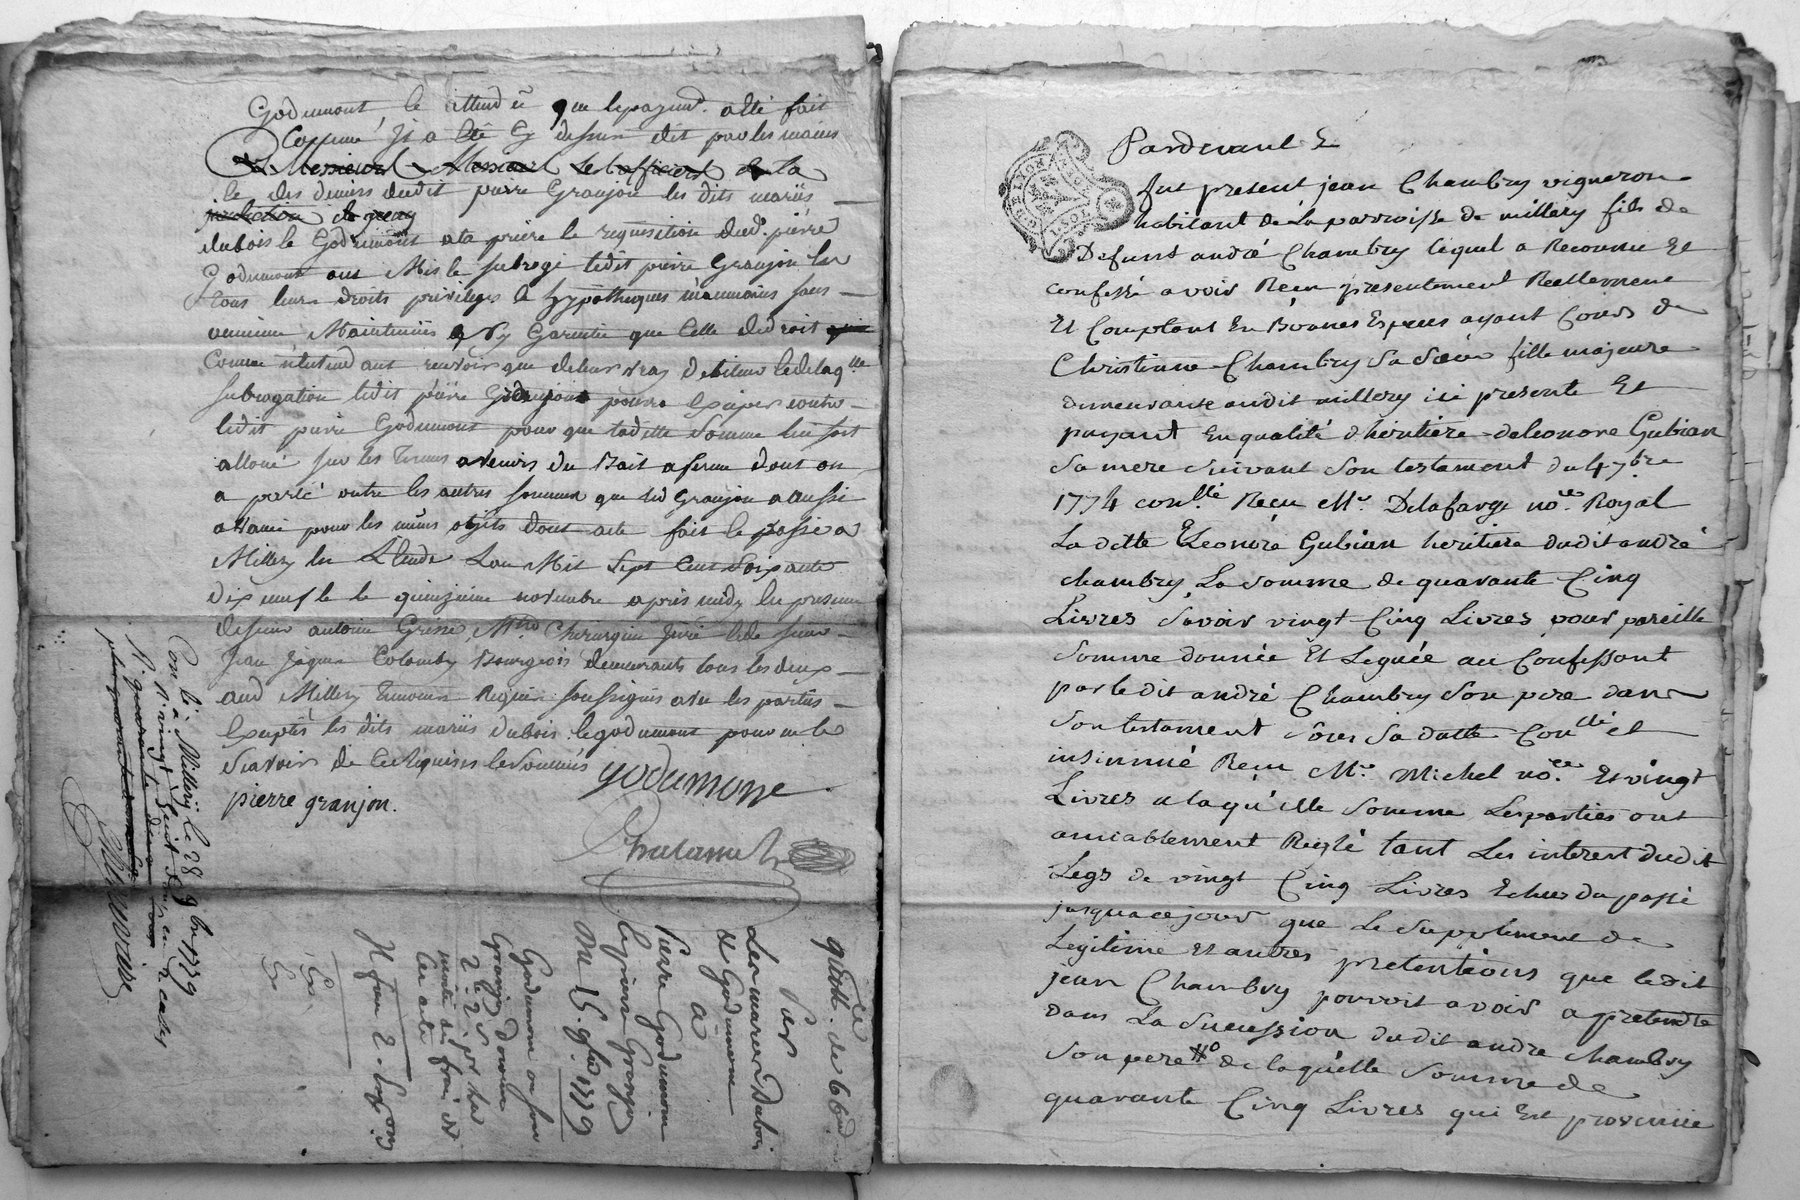 Godumont et attendu que le payemt. a été fait
Comme il a été cy dessus dit par les mains
de Messieurs Messieurs les officiers de la
et des deniers dudit pierre Granjon les dits mariés
juridiction de
dubois et Godumont a la priere et requisition dud. pierre
Godumont ont Mis et subrogé ledit pierre Granjon en
tous leurs droits privileges et hypotheques neanmoins sans
aucune Maintenüe ny Garentie que celle de droit
Comme n'entendant recevoir que de leur vray debiteur de laqlle
subrogation ledit pierre Granjon pourra exciper contre
ledit pierre Godumont pour que ladette somme lui soit
alloué sur les termes a venirs du Bail a ferme dont on
a parlé outre les autres sommes que led Granjon a aussi
payé pour les mêmes objets dont acte fait et passé a
Millery en L'Etude L'an Mil Sept Cent Soixante
dix neuf et le quinzieme novembre apres midy en presence
de sieur antoine Grisse Mtre Chirurgien juré et de sieur
Jean Jaques Colomby Bourgeois demeurants tous les deux
aud Millery temoins Requis soussignés avec les parties
Exceptés les dits mariés dubois et godumont pour ne le
Scavoir de ce Enquis et Sommés
godumont
pierre granjon.
Con.lé a Millery le 28 9bre 1779
R. vingt huit sous en 2 cases
quitt.ce de 66
Par
Les mariés Dubois
et Godumont
a
Pierre Godumont
et pierre Granjon
Du 15. 9bre 1779
Godumont
Granjon
minute
cet acte
Pardevant &
fut present jean Chambry vigneron
habitant de La parroisse de millery fils de
Defunt andré Chambry lequel a Reconnu Et
confessé avoir Reçu presentement Reellement
Et Comptant En Bonnes Especes ayant Cours de
Christinne Chambry Sa Sœur fille majeure
demeurante audit millery ici presente Et
payant En qualité d'héritiere de leonore Gubian
Sa mere Suivant Son testament du 4 7bre
1774 con.lé Reçu Me. Delafarge no.re Royal
La ditte Eleonore Gubian heritiere dudit andré
chambry, La Somme de quarante Cinq
Livres Savoir vingt Cinq Livres pour pareille
Somme donnée Et Leguée au Confessant
par le dit andré Chambry Son pere dans
Son testament Sous Sa datte Con.lé et
insinué Reçu Me. Michel no.re Et vingt
Livres a laqu'elle Somme Les parties ont
amiablement Reglé tant Les interest dudit
Legs de vingt Cinq Livres Echus du passé
jusqu a ce jour que Le Supplement de
Legitime Et autres pretentions que ledit
jean Chambry pourroit avoir a pretendre
dans La Succession dudit andre Chambry
Son pere de laquelle Somme de
quarante Cinq Livres qui Est provenue